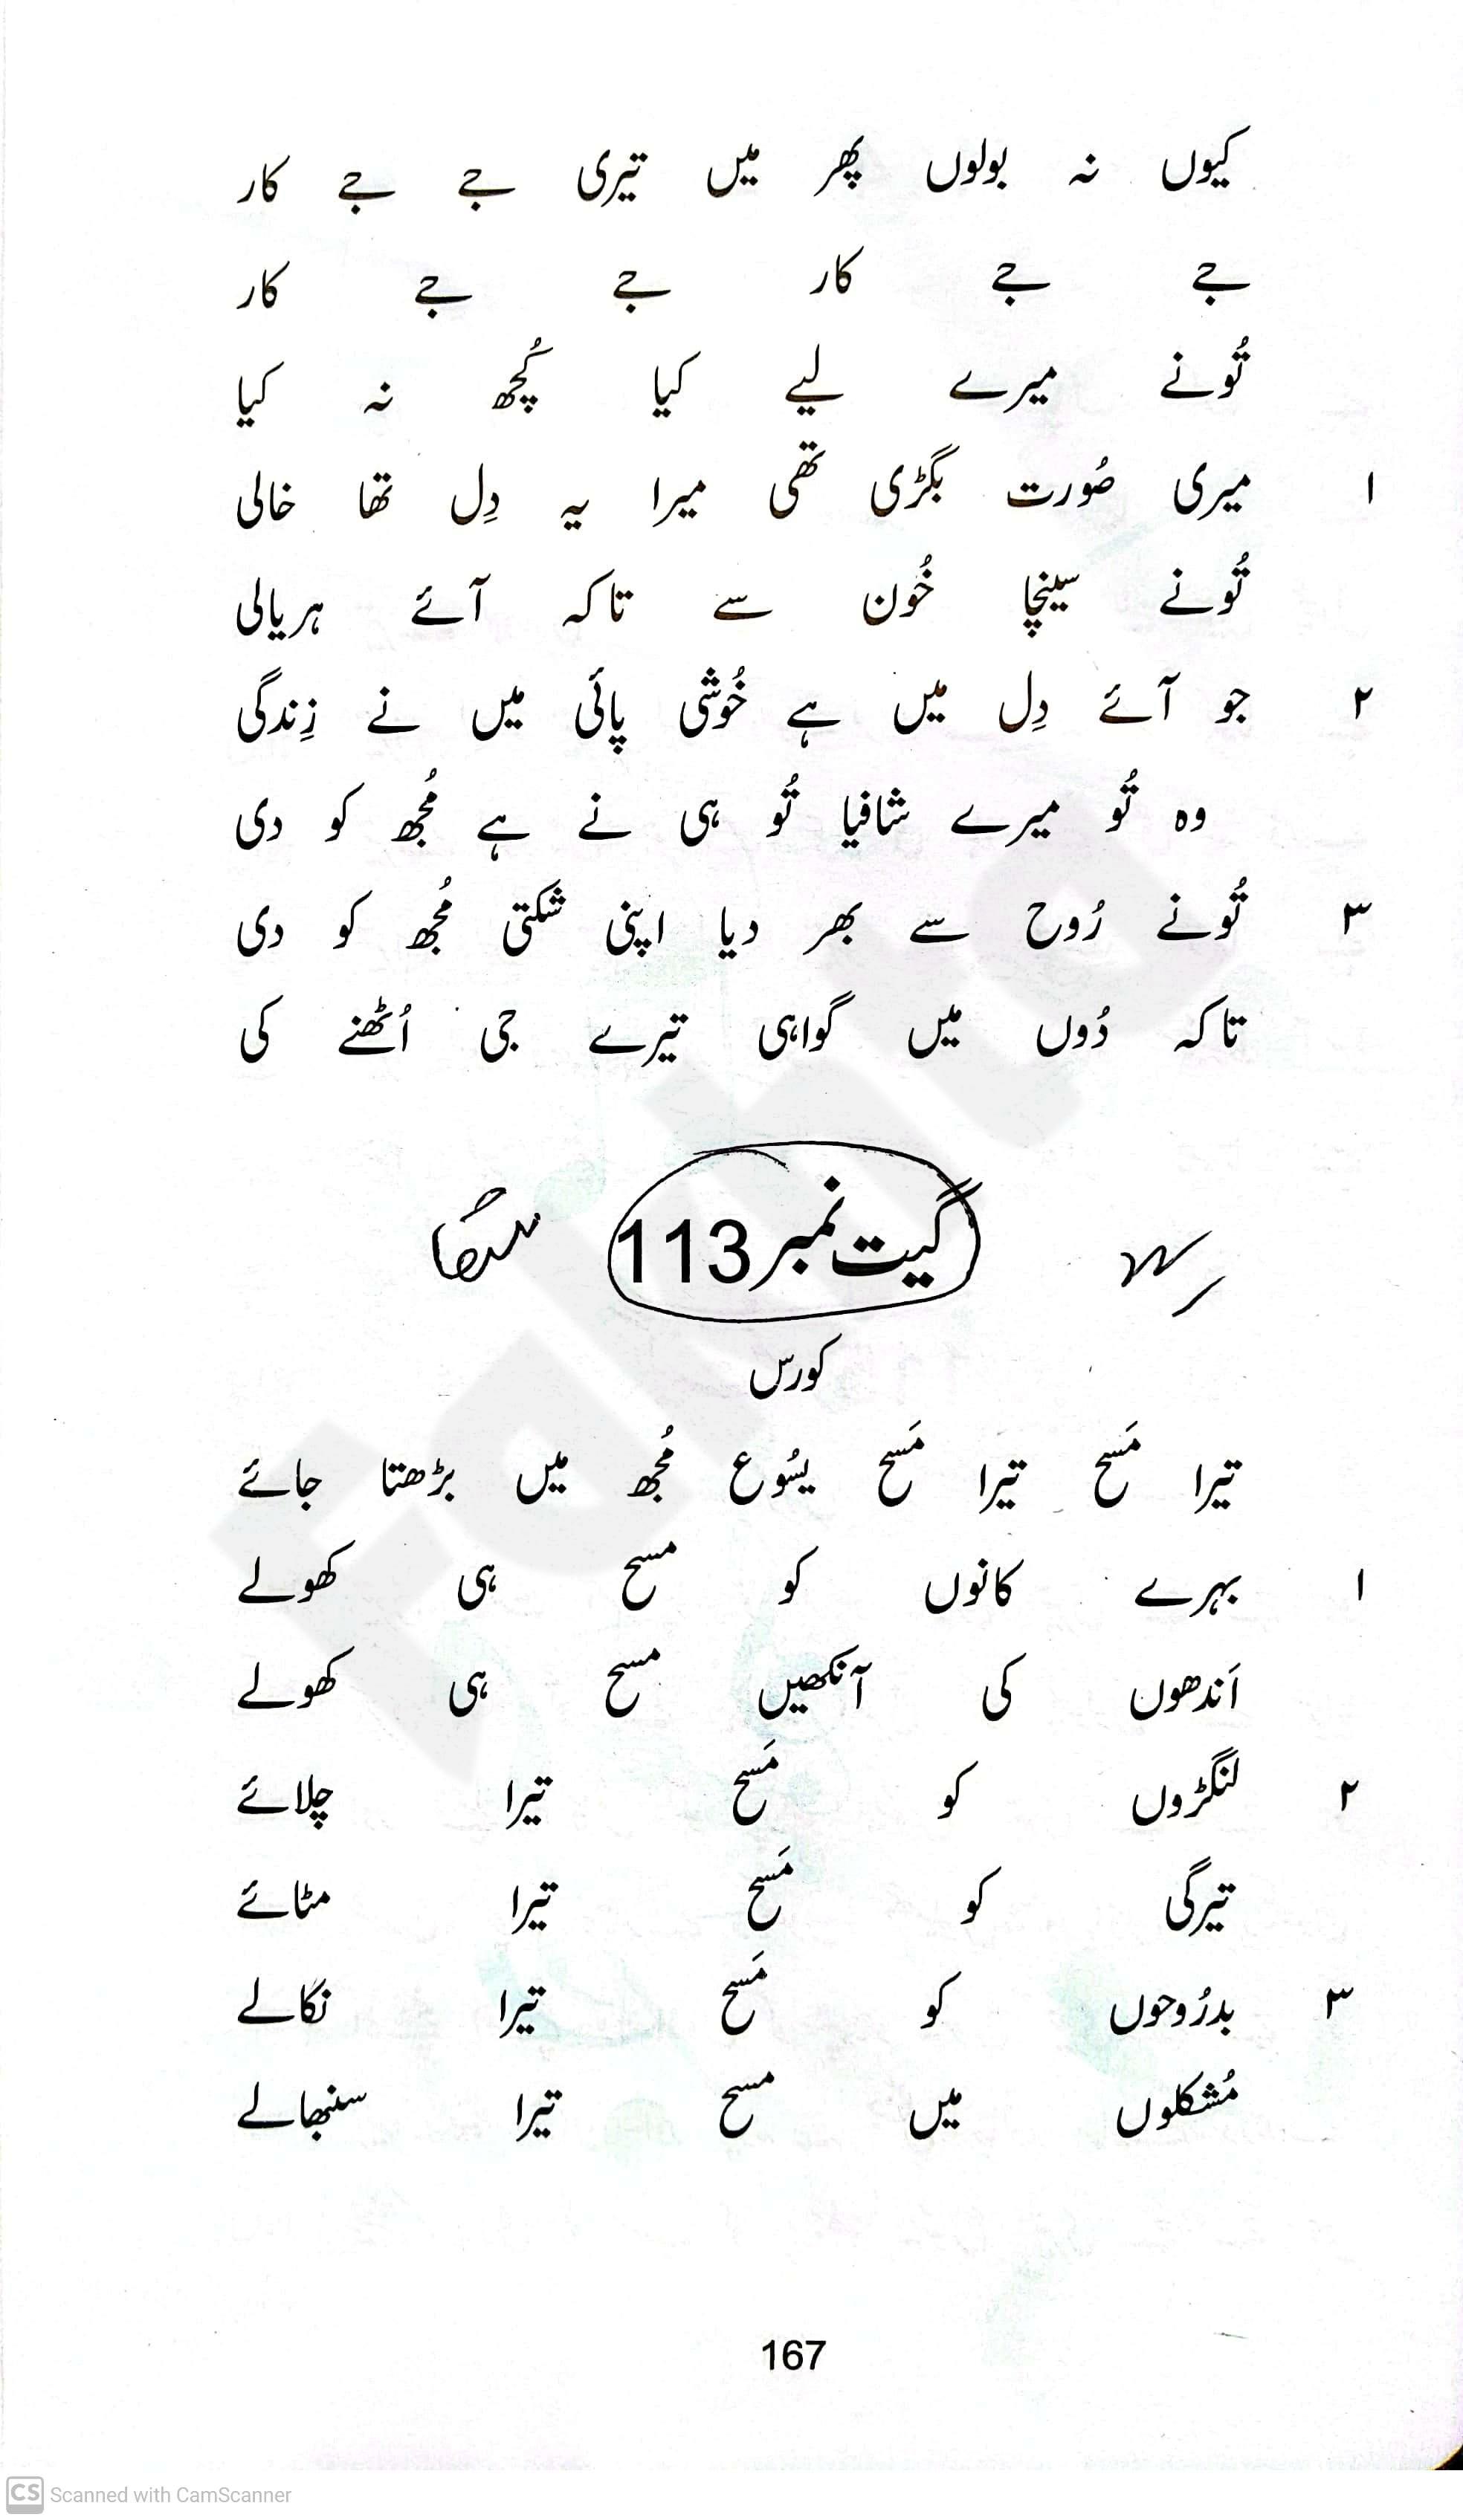 کیوں نہ بولوں پھر میں تیری جے جے کار
جے جے کار جے جے کار
تُونے میرے لیے کیا کُچھ نہ کیا
۱ میری صُورت بگڑی تھی میرا یہ دِل تھا خالی
تُونے سینچا خُون سے تاکہ آئے ہریالی
۲ جو آئے دِل میں ہے خُوشی پائی میں نے زِندگی
وہ تُو میرے شافیا تُو ہی نے ہے مُجھ کو دی
۳ تُونے رُوح سے بھر دیا اپنی شکتی مُجھ کو دی
تاکہ دُوں میں گواہی تیرے جی اُٹھنے کی
گیت نمبر 113
کورس
تیرا مَسح تیرا مَسح یسُوع مُجھ میں بڑھتا جائے
۱ بہرے کانوں کو مسح ہی کھولے
اَندھوں کی آنکھیں مسح ہی کھولے
۲ لنگڑوں کو مَسح تیرا چلائے
تیرگی کو مَسح تیرا مٹائے
۳ بدرُوحوں کو مَسح تیرا نکالے
مُشکلوں میں مسح تیرا سنبھالے
167
CS Scanned with CamScanner